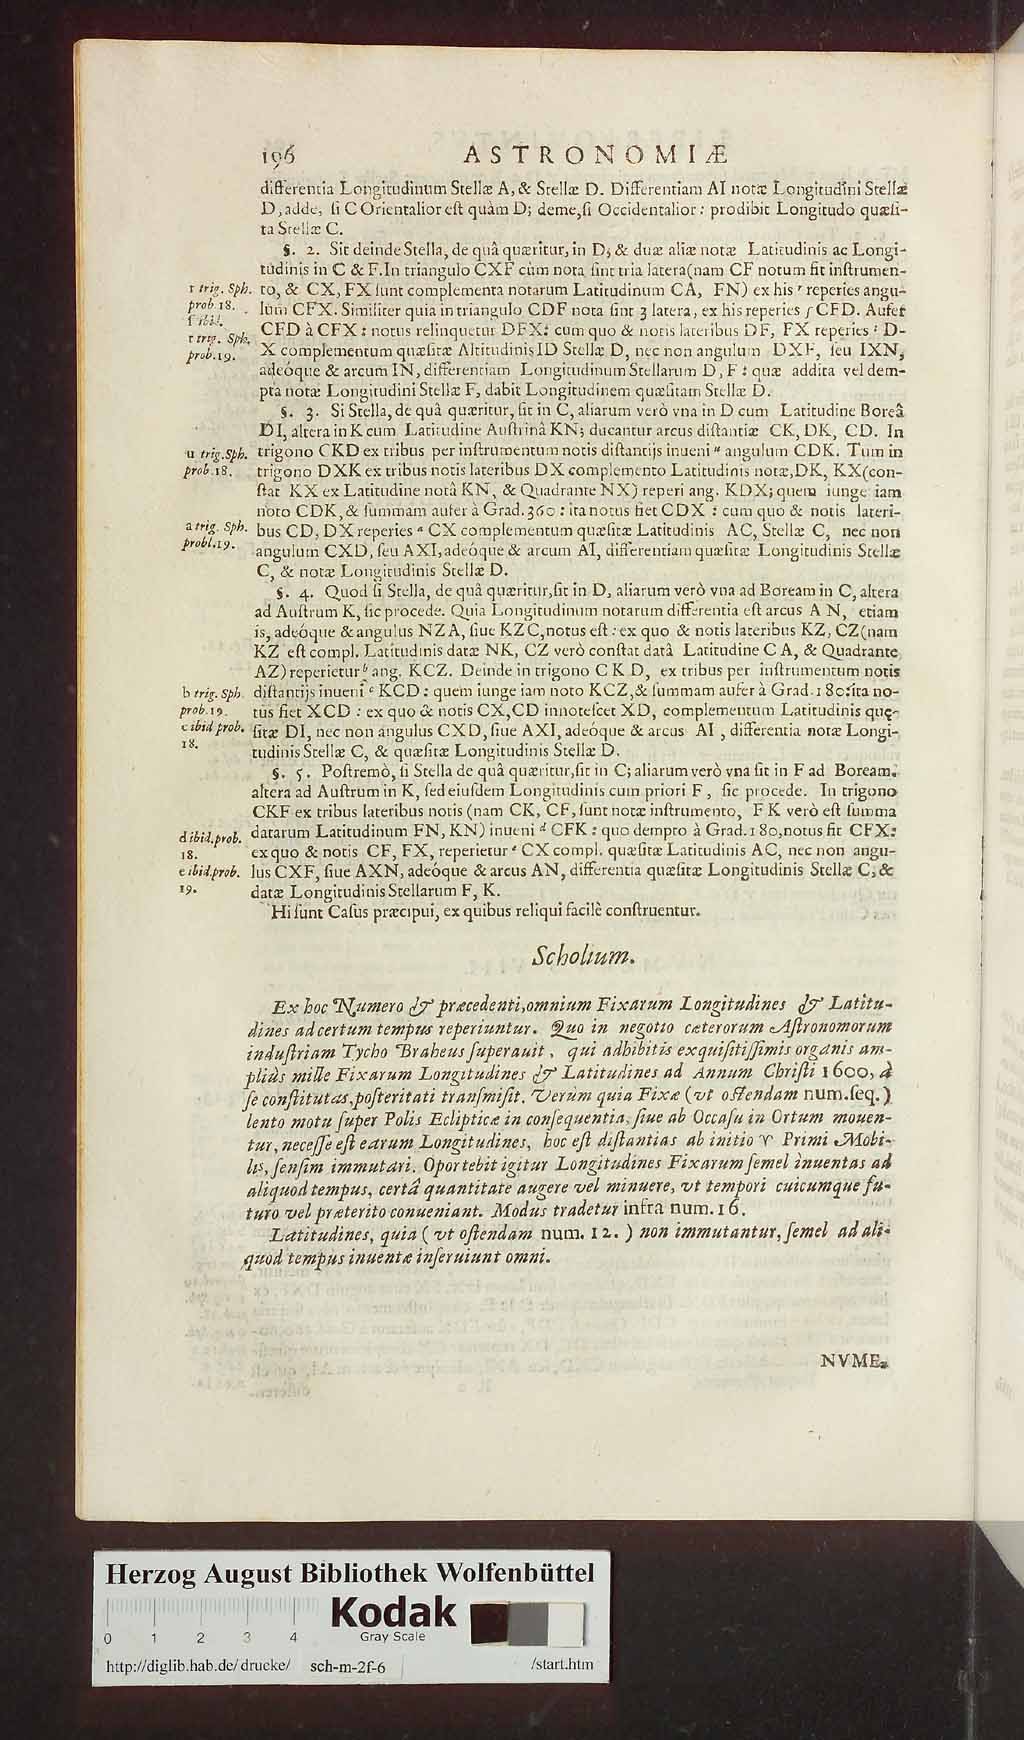 196 ASTRONOMIÆ
differentia Longitudinum Stellæ A, & Stellæ D. Differentiam AI notæ Longitudini Stellæ
D, adde, ſi C Orientalior eſt quàm D; deme, ſi Occidentalior: prodibit Longitudo quæſi-
ta Stellæ C.
§. 2. Sit deinde Stella, de quâ quæritur, in D; & duæ aliæ notæ Latitudinis ac Longi-
tudinis in C & F. In triangulo CXF cùm nota ſint tria latera (nam CF notum fit inſtrumen-
r trig. Sph. to, & CX, FX ſunt complementa notarum Latitudinum CA, FN) ex his r reperies angu-
prob. 18. lum CFX. Similiter quia in triangulo CDF nota ſint 3 latera, ex his reperies ſ CFD. Aufer
ſ ibid. CFD à CFX: notus relinquetur DFX: cum quo & notis lateribus DF, FX reperies t D-
t trig. Sph. prob. 19. X complementum quæſitæ Altitudinis ID Stellæ D, nec non angulum DXF, ſeu IXN,
adeóque & arcum IN, differentiam Longitudinum Stellarum D, F: quæ addita vel dem-
pta notæ Longitudini Stellæ F, dabit Longitudinem quæſitam Stellæ D.
§. 3. Si Stella, de quâ quæritur, ſit in C, aliarum verò vna in D cum Latitudine Boreâ
DI, altera in K cum Latitudine Auſtrinâ KN; ducantur arcus diſtantiæ CK, DK, CD. In
u trig. Sph. trigono CKD ex tribus per inſtrumentum notis diſtantijs inueni u angulum CDK. Tum in
prob. 18. trigono DXK ex tribus notis lateribus DX complemento Latitudinis notæ, DK, KX (con-
ſtat KX ex Latitudine notâ KN, & Quadrante NX) reperi ang. KDX; quem iunge iam
noto CDK, & ſummam aufer à Grad. 360: ita notus fiet CDX: cum quo & notis lateri-
a trig. Sph. bus CD, DX reperies a CX complementum quæſitæ Latitudinis AC, Stellæ C, nec non
probl. 19. angulum CXD, ſeu AXI, adeóque & arcum AI, differentiam quæſitæ Longitudinis Stellæ
C, & notæ Longitudinis Stellæ D.
§. 4. Quod ſi Stella, de quâ quæritur, ſit in D, aliarum verò vna ad Boream in C, altera
ad Auſtrum K, ſic procede. Quia Longitudinum notarum differentia eſt arcus AN, etiam
is, adeóque & angulus NZA, ſiue KZC, notus eſt: ex quo & notis lateribus KZ, CZ (nam
KZ eſt compl. Latitudinis datæ NK, CZ verò conſtat datâ Latitudine CA, & Quadrante
AZ) reperietur b ang. KCZ. Deinde in trigono CKD, ex tribus per inſtrumentum notis
b trig. Sph. diſtantijs inueni c KCD: quem iunge iam noto KCZ, & ſummam aufer à Grad. 180: ita no-
prob. 19. tus fiet XCD: ex quo & notis CX, CD innoteſcet XD, complementum Latitudinis quę-
c ibid prob. ſitæ DI, nec non angulus CXD, ſiue AXI, adeóque & arcus AI, differentia notæ Longi-
18. tudinis Stellæ C, & quæſitæ Longitudinis Stellæ D.
§. 5. Poſtremò, ſi Stella de quâ quæritur, ſit in C; aliarum verò vna ſit in F ad Boream,
altera ad Auſtrum in K, ſed eiuſdem Longitudinis cum priori F, ſic procede. In trigono
CKF ex tribus lateribus notis (nam CK, CF, ſunt notæ inſtrumento, FK verò eſt ſumma
d ibid. prob. datarum Latitudinum FN, KN) inueni d CFK: quo dempto à Grad. 180, notus fit CFX:
18. ex quo & notis CF, FX, reperietur e CX compl. quæſitæ Latitudinis AC, nec non angu-
e ibid. prob. lus CXF, ſiue AXN, adeóque & arcus AN, differentia quæſitæ Longitudinis Stellæ C, &
19. datæ Longitudinis Stellarum F, K.
Hi ſunt Caſus præcipui, ex quibus reliqui facilè conſtruentur.
Scholium.
Ex hoc Numero & præcedenti, omnium Fixarum Longitudines & Latitu-
dines ad certum tempus reperiuntur. Quo in negotio cæterorum Aſtronomorum
induſtriam Tycho Braheus ſuperauit, qui adhibitis exquiſitiſſimis organis am-
pliùs mille Fixarum Longitudines & Latitudines ad Annum Chriſti 1600, à
ſe conſtitutas, poſteritati tranſmiſit. Verùm quia Fixæ (vt oſtendam num. ſeq.)
lento motu ſuper Polis Eclipticæ in conſequentia, ſiue ab Occaſu in Ortum mouen-
tur, neceſſe eſt earum Longitudines, hoc eſt diſtantias ab initio ♈ Primi Mobi-
lis, ſenſim immutari. Oportebit igitur Longitudines Fixarum ſemel inuentas ad
aliquod tempus, certâ quantitate augere vel minuere, vt tempori cuicumque fu-
turo vel præterito conueniant. Modus tradetur infra num. 16.
Latitudines, quia (vt oſtendam num. 12.) non immutantur, ſemel ad ali-
quod tempus inuentæ inſeruiunt omni.
NVME-
Herzog August Bibliothek Wolfenbüttel
Kodak
Gray Scale
0 1 2 3 4
http://diglib.hab.de/drucke/ sch-m-2f-6 /start.htm